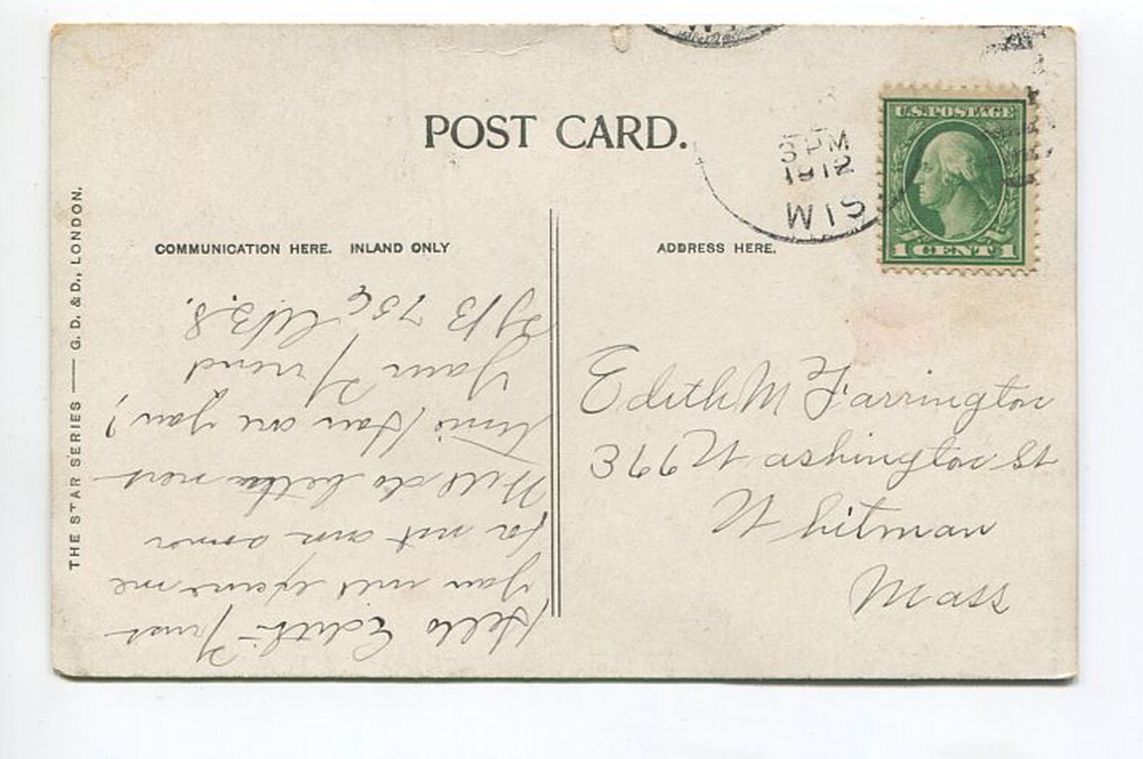 POST CARD.
3 PM
1912
WIS
U.S. POSTAGE
1 CENT 1
COMMUNICATION HERE. INLAND ONLY
ADDRESS HERE.
THE STAR SERIES — G. D. & D., LONDON.
Hello Edith- Trust
you will excuse me
for not ans
Will do better next
time. How are you?
Your Friend
Edith M Farrington
366 Washington St
Whitman
Mass